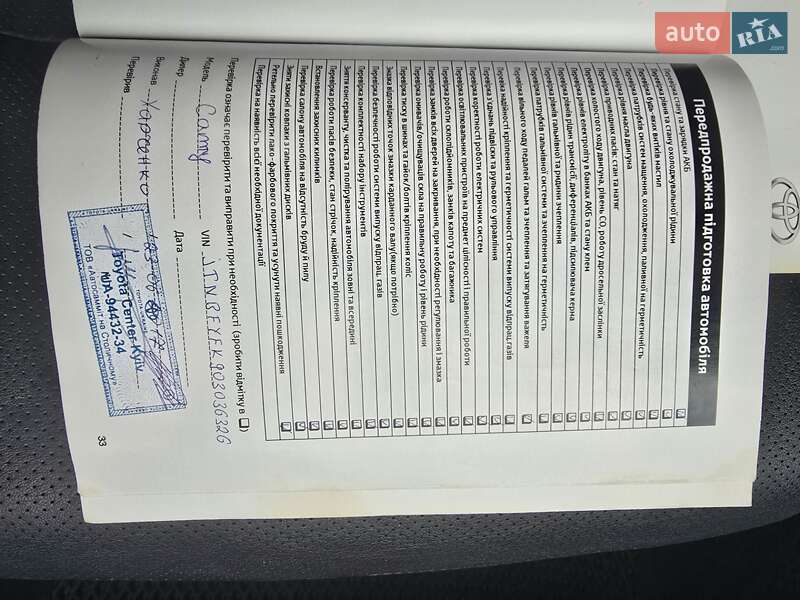 auto RIA.com
Передпродажна підготовка автомобіля
Перевірка стану та зарядки АКБ
Перевірка рівня та стану охолоджувальної рідини
Перевірка будь-яких витіків мастил
Перевірка патрубків систем мащення, охолодження, паливної на герметичність
Перевірка рівня масла двигуна
Перевірка приводних пасів: стан та натяг
Перевірка холостого ходу двигуна, рівень СО, роботу дросельної заслінки
Перевірка рівня електроліту в банках АКБ та стану клем
Перевірка рівня рідин: трансмісії, диференціалів, підсилювача керма
Перевірка рівня гальмівної та рідини зчеплення
Перевірка патрубків гальмівної системи та зчеплення на герметичність
Перевірка вільного ходу педалей гальм та зчеплення та затягування важеля
Перевірка надійності кріплення та герметичності системи випуску відпрац.газів
Перевірка з'єднань підвіски та рульового управління
Перевірка коректності роботи електричних систем
Перевірка освітлювальних пристроїв на предмет цілісності і правильної роботи
Перевірка роботи склопідйомників, замків капоту та багажника
Перевірка замків всіх дверей на закривання, при необхідності регулювання і змазка
Перевірка омивачів/очищувачів скла на правильну роботу і рівень рідини
Перевірка тиску в шинах та гайок/болтів кріплення коліс
Змазка відповідних точок змазки карданного валу(якщо потрібно)
Перевірка безпечності роботи системи випуску відпрац. газів
Перевірка комплектності набору інструментів
Зняття консерванту, чистка та полірування автомобіля зовні та всередині
Перевірка роботи пасів безпеки, стан стрічок, надійність кріплення
Встановлення захисних килимків
Перевірка салону автомобіля на відсутність бруду й пилу
Зняти захисні ковпаки з гальмівних дисків
Ретельно перевірити лако-фарбового покриття та усунути наявні пошкодження
Перевірка на наявність всієї необхідної документації
Перевірка означає перевірити та виправити при необхідності (зробити відмітку в ☐)
Модель Camry VIN JTNBFYFK903036326
Дилер Дата
Виконав Харченко
Перевірив
Toyota Center Kyiv
NUA-94432-34
ТОВ «Автосаміт на Столичному»
33